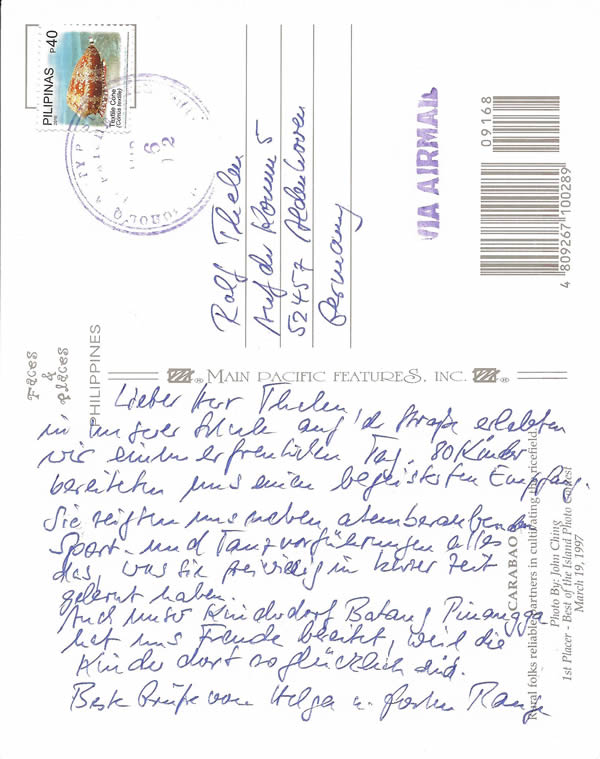 PILIPINAS P40
Textile Cone
(Conus textile)
6
12
Rolf Thelen
Auf der Komm 5
52457 Aldenhoven
Germany
VIA AIRMAIL
09168
4 809267 100289
Faces
&
places
PHILIPPINES
MAIN PACIFIC FEATURES, INC.
Lieber Herr Thelen,
in unserer Schule auf der Straße erlebten
wir einen erfreulichen Tag. 80 Kinder
bereiteten uns einen begeisterten Empfang.
Sie zeigten uns neben atemberaubenden
Sport- und Tanzvorführungen alles
das, was sie freiwillig in kurzer Zeit
gelernt haben.
Auch unser Kinderdorf Batang Pinangga
hat uns Freude bereitet, weil die
Kinder dort so glücklich sind.
Beste Grüße von Helga u.
CARABAO
Rural folks reliable partners in cultivating the ricefield.
Photo By: John Ching
1st Placer - Best of the Island Photo Contest
March 19, 1997